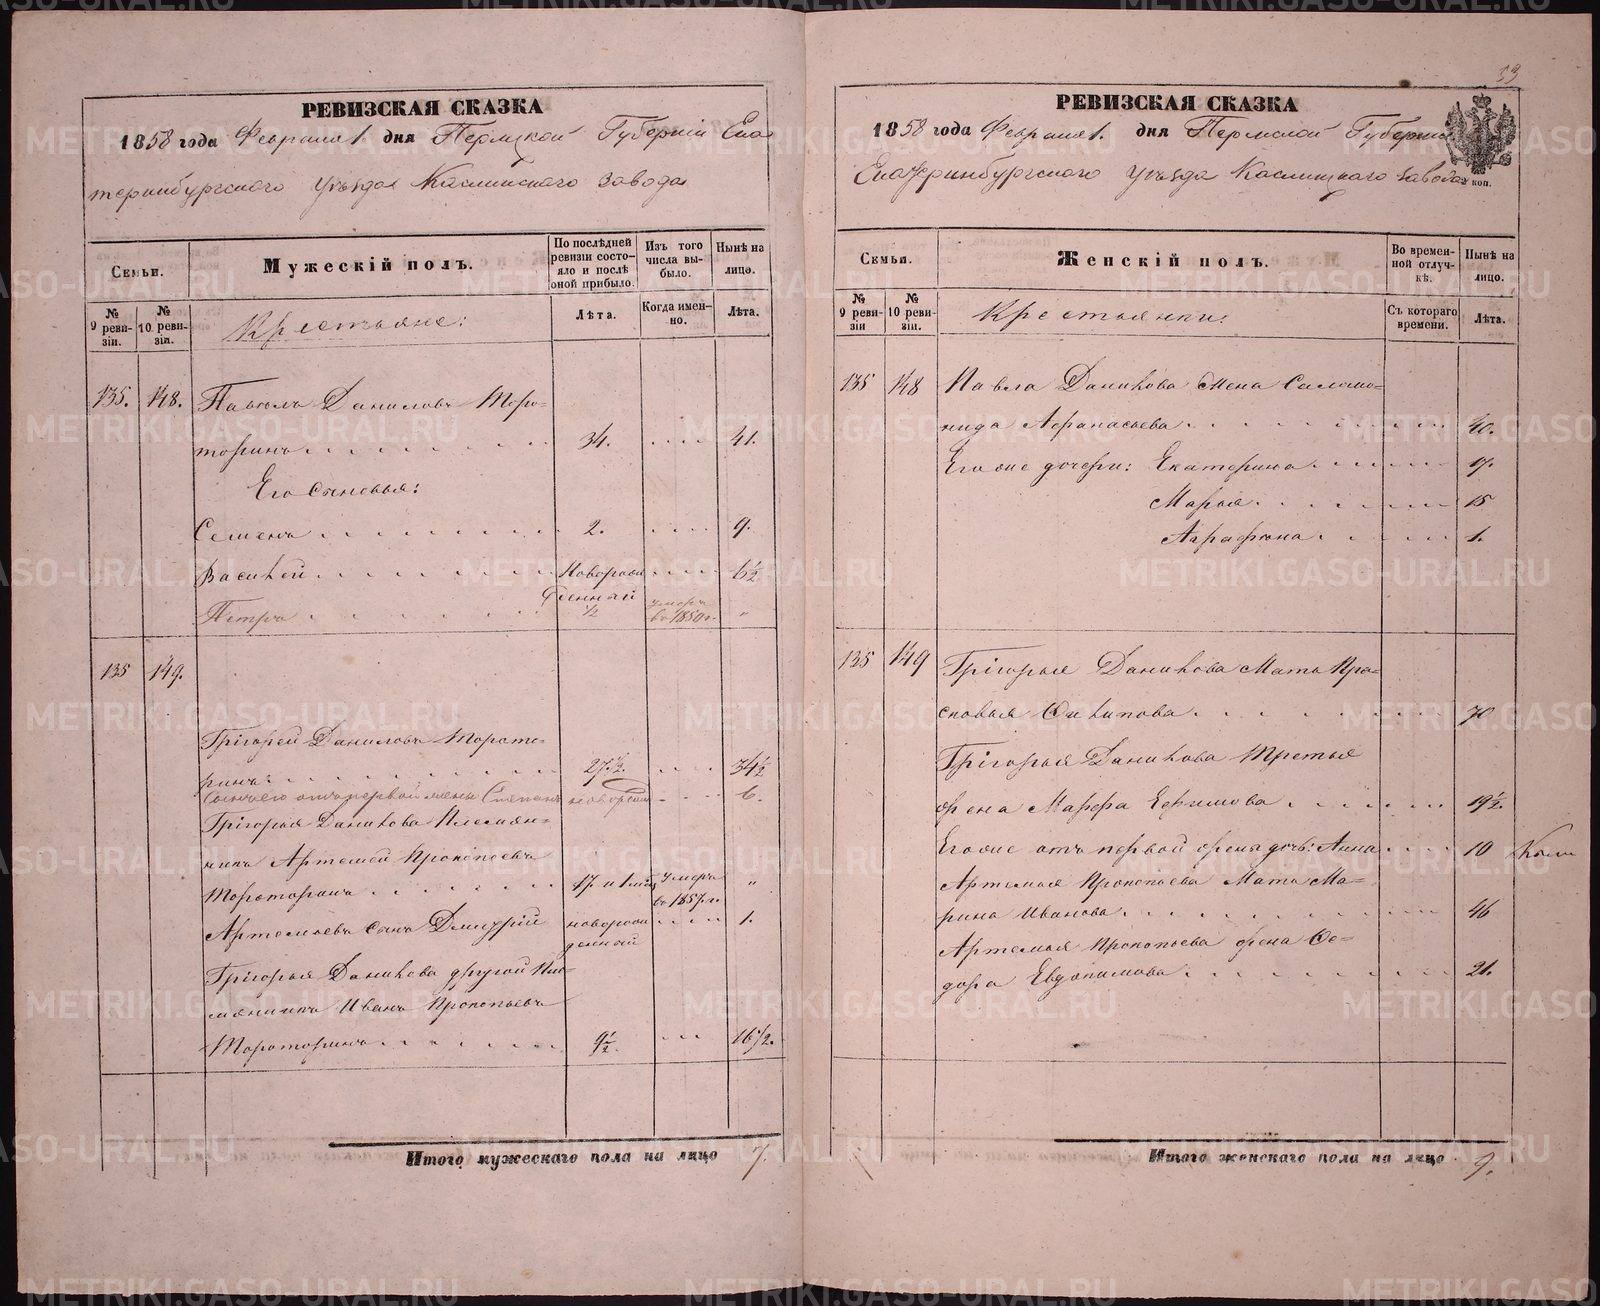 РЕВИЗСКАЯ СКАЗКА
1858 года Февраля 1 дня Пермской Губерніи Ека
теринбургского уѣзда Каслинского завода
Семьи.
Мужескій полъ.
По послѣдней ревизіи состояло и послѣ оной прибыло.
Изъ того числа выбыло.
Нынѣ на лицо.
№ 9 ревизіи.
№ 10 ревизіи.
Крестьяне:
Лѣта.
Когда именно.
Лѣта.
135. 148. Павелъ Даниловъ Торо-
торинъ 34. 41.
Его Сыновья:
Семенъ 2. 9.
Василей Новорож 6½
денной
Петръ ½ умеръ в 1850 г. "
135 149.
Григорей Даниловъ Торото-
ринъ 27½. 34½
Сынъ его отъ первой жены Степанъ новорож 6.
Григорья Данилова Племян-
никъ Артемей Прокопьевъ
Тороторинъ 17 и 1 мѣс умеръ в 1857 г. "
Артемьевъ сынъ Дмитрій новорож 1.
денной
Григорья Данилова другой Пле-
мянникъ Иванъ Прокопьевъ
Тороторинъ 9½. 16½.
Итого мужескаго пола на лицо 7.
33
РЕВИЗСКАЯ СКАЗКА
1858 года Февраля 1. дня Пермской Губерніи
Екатеринбургского уѣзда Каслинского завода
коп.
Семьи.
Женскій полъ.
Во временной отлучкѣ.
Нынѣ на лицо.
№ 9 ревизіи
№ 10 ревизіи.
Крестьянки:
Съ котораго времени.
Лѣта.
135 148 Павла Данилова Жена Саломо-
нида Афанасьева 40.
Его же дочери: Екатерина 17.
Марья 15
Аграфена 1.
135 149 Григорья Данилова Мать Пра-
сковья Осипова 70
Григорья Данилова третья
жена Марфа Ефимова 19½.
Его же отъ первой жены дочь: Анна 10
Артемья Прокопьева Мать Ма-
рина Иванова 46
Артемья Прокопьева жена Ѳе-
дора Евдокимова 21.
Итого женскаго пола на лицо 9.
METRIKI.GASO-URAL.RU